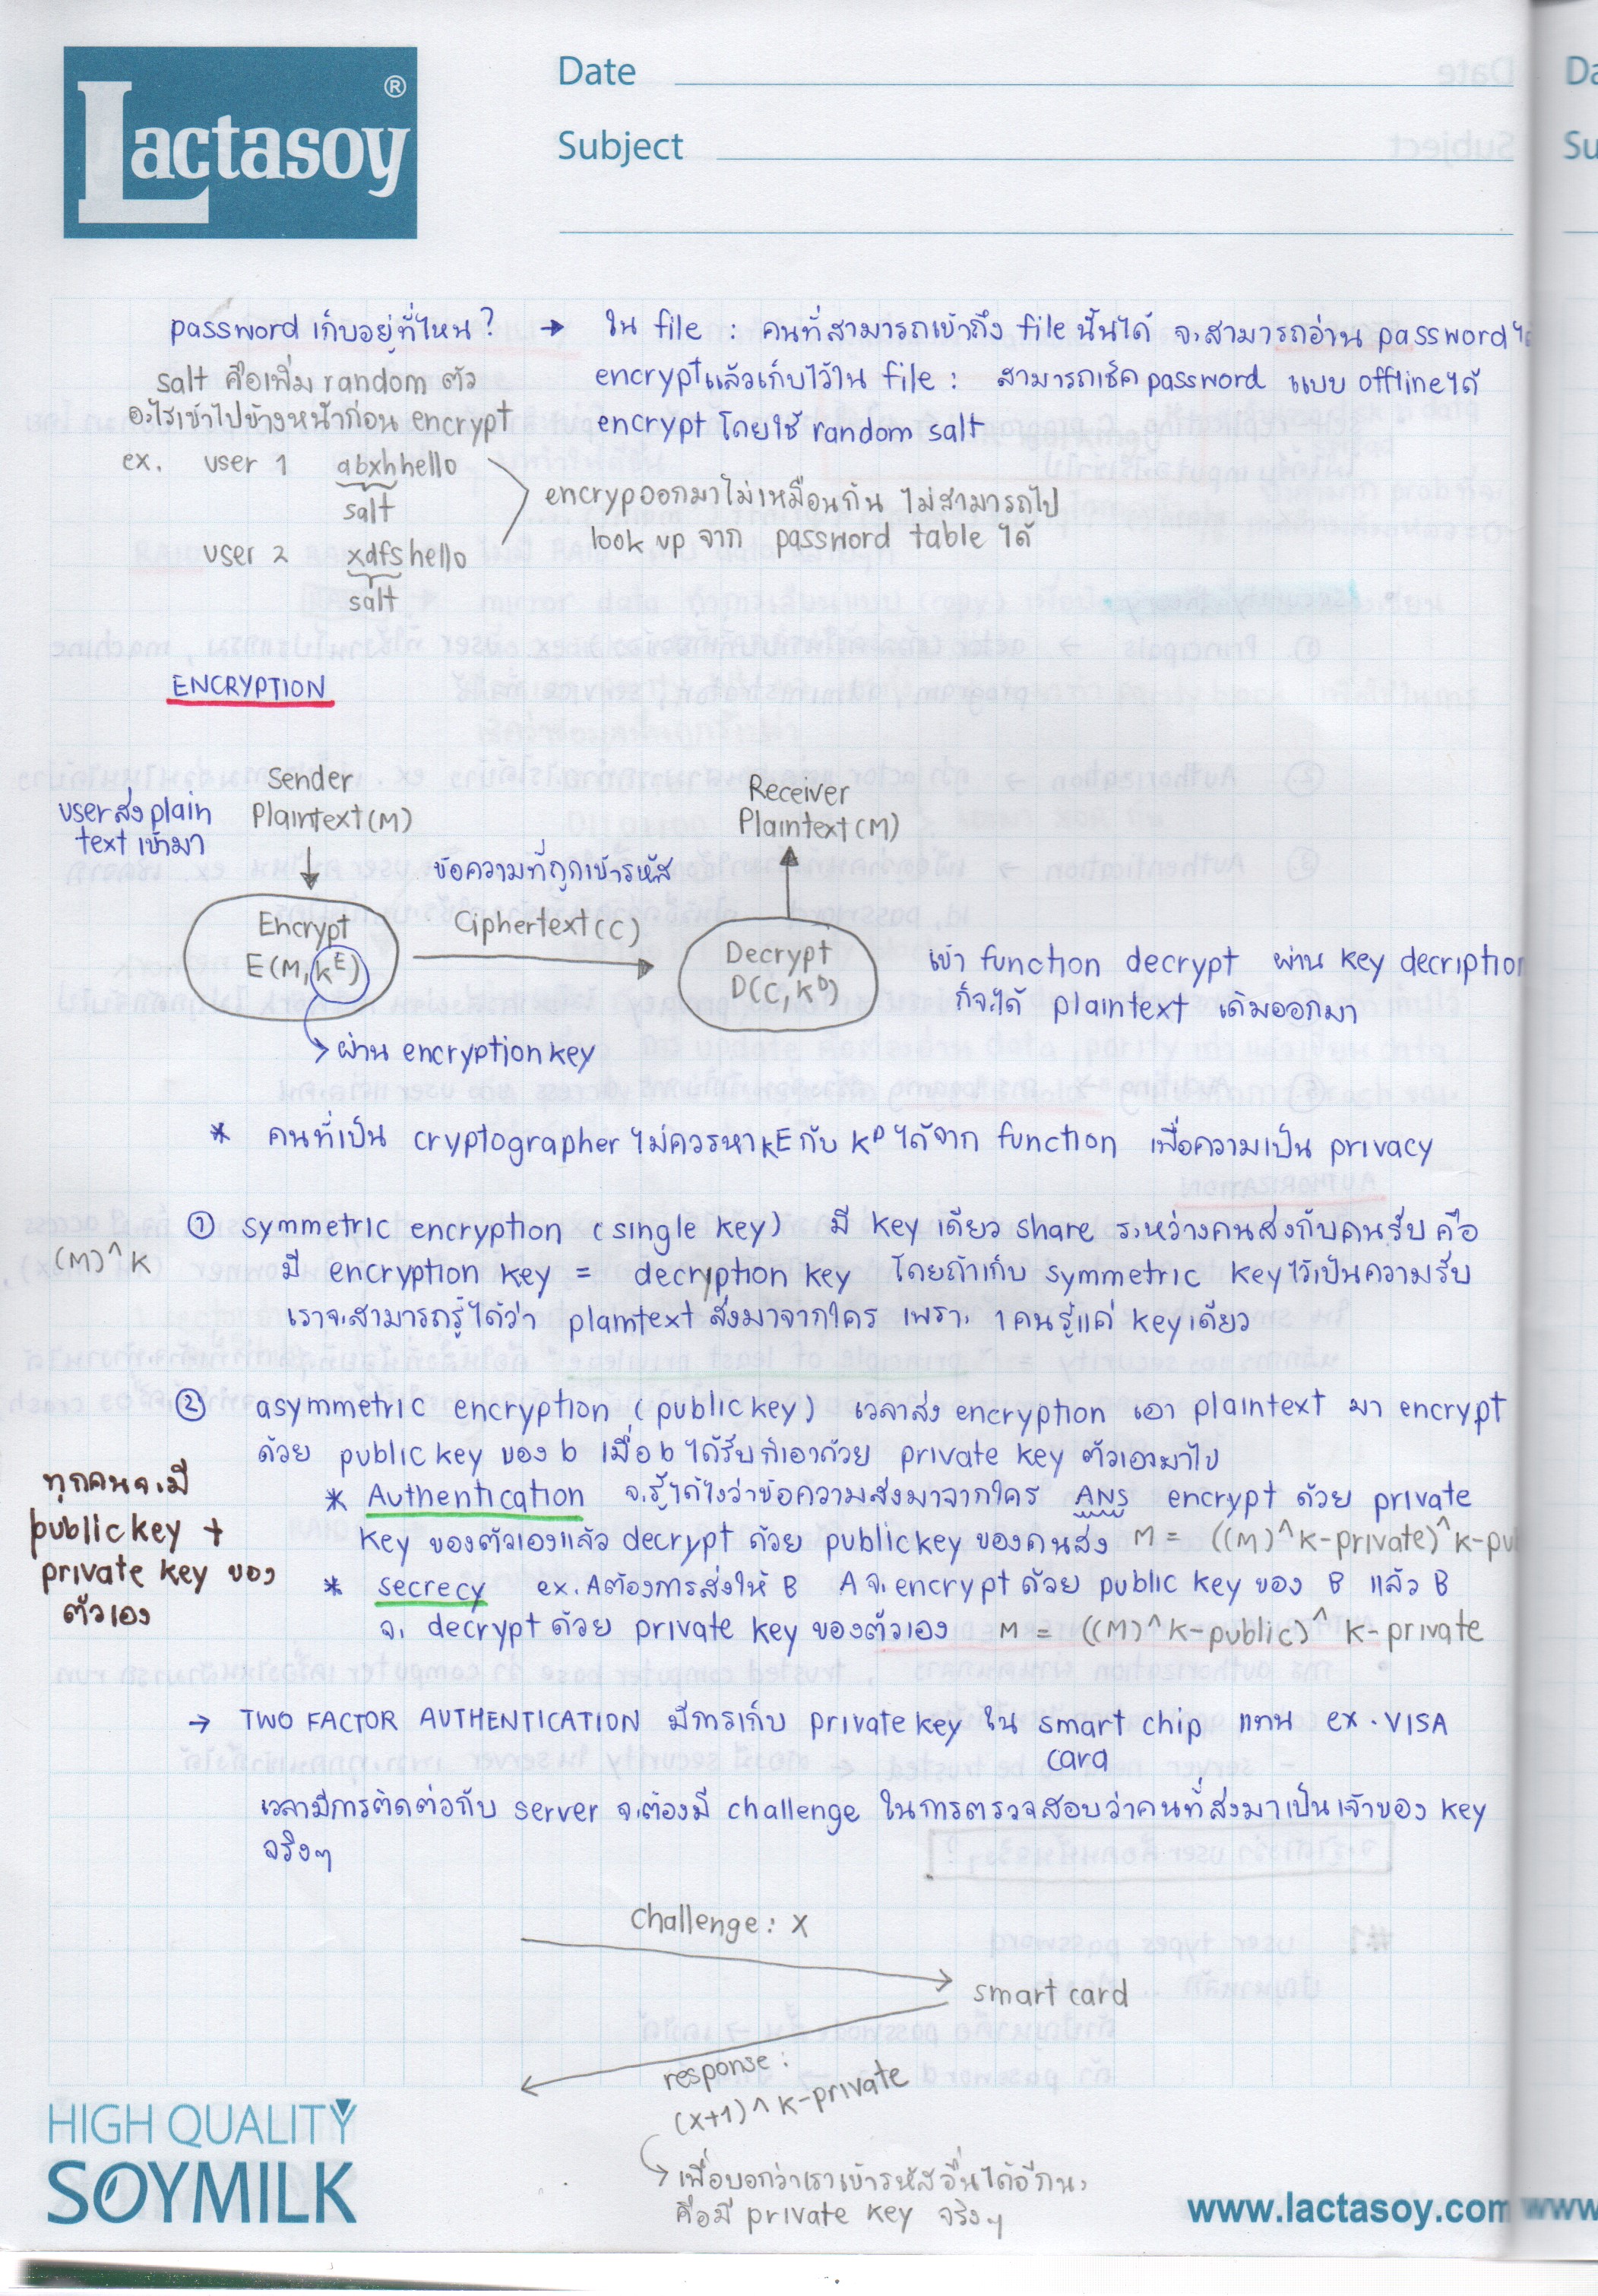 Lactasoy®
Date
Subject
password เก็บอยู่ที่ไหน? → ใน file : คนที่สามารถเข้าถึง file นั้นได้ จะสามารถอ่าน password ได้
encryptแล้วเก็บไว้ใน file : สามารถเช็ค password แบบ offlineได้
encrypt โดยใช้ random salt
salt คือเพิ่ม random ตัว
อะไรเข้าไปข้างหน้าก่อน encrypt
ex. user 1 abxhhello
salt
user 2 xdfshello
salt
encrypออกมาไม่เหมือนกัน ไม่สามารถไป
look up จาก password table ได้
ENCRYPTION
Sender
Plaintext(M)
userส่งplain
text เข้ามา
Receiver
Plaintext(M)
ข้อความที่ถูกเข้ารหัส
Encrypt
E(M,kᴱ)
Ciphertext(C)
Decrypt
D(C,Kᴰ)
เข้า function decrypt ผ่าน key decription
ก็จะได้ plaintext เดิมออกมา
ผ่าน encryption key
* คนที่เป็น cryptographer ไม่ควรหา kᴱ กับ Kᴰ ได้จาก function เพื่อความเป็น privacy
① symmetric encryption (single key) มี key เดียว share ระหว่างคนส่งกับคนรับ คือ
(M)^K
มี encryption key = decryption key โดยถ้าเก็บ symmetric keyไว้เป็นความรับ
เราจะสามารถรู้ได้ว่า plaintext ส่งมาจากใคร เพราะ 1คนรู้แค่ keyเดียว
② asymmetric encryption (public key) เวลาส่ง encryption เอา plaintext มา encrypt
ด้วย public key ของ b เมื่อ b ได้รับก็เอาด้วย private key ตัวเองมาไข
ทุกคนจะมี
public key +
private key ของ
ตัวเอง
* Authentication จะรู้ได้ไงว่าข้อความส่งมาจากใคร ANS encrypt ด้วย private
key ของตัวเองแล้ว decrypt ด้วย publickey ของคนส่ง M = ((M)^K-private)^K-pu
* secrecy ex. Aต้องการส่งให้ B A จะencrypt ด้วย public key ของ B แล้ว B
จะ decrypt ด้วย private key ของตัวเอง M = ((M)^K-public)^ K-private
→ TWO FACTOR AUTHENTICATION มีการเก็บ private key ใน smart chip แทน ex. VISA
card
เวลามีการติดต่อกับ server จะต้องมี challenge ในการตรวจสอบว่าคนที่ส่งมาเป็นเจ้าของ key
จริงๆ
challenge: X
smart card
response:
(x+1)^K-private
เพื่อบอกว่าเราเข้ารหัสอื่นได้อีกนะ
คือมี private key จริงๆ
HIGH QUALITY
SOYMILK
www.lactasoy.com